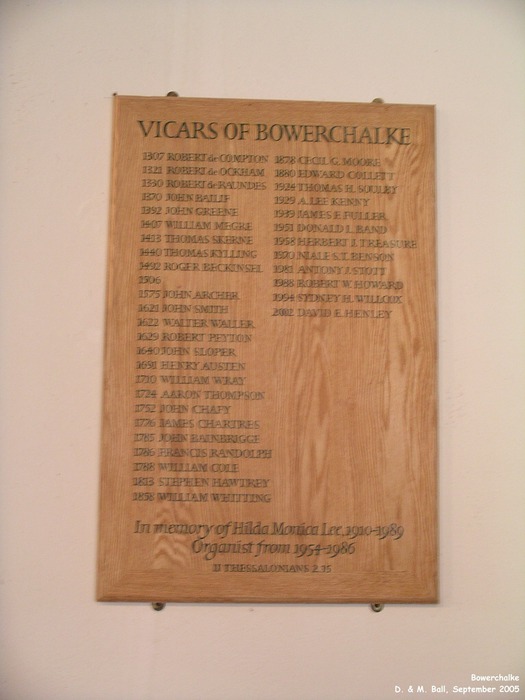 VICARS OF BOWERCHALKE
1307 ROBERT de COMPTON
1321 ROBERT de OCKHAM
1330 ROBERT de RAUNDES
1370 JOHN BAILIF
1392 JOHN GREENE
1407 WILLIAM MEGRE
1413 THOMAS SKERNE
1440 THOMAS KYLLING
1492 ROGER BECKINSEL
1506
1575 JOHN ARCHER
1621 JOHN SMITH
1622 WALTER WALLER
1629 ROBERT PEYTON
1640 JOHN SLOPER
1691 HENRY AUSTEN
1710 WILLIAM WRAY
1724 AARON THOMPSON
1752 JOHN CHAFY
1776 JAMES CHARTRES
1785 JOHN BAINBRIGGE
1786 FRANCIS RANDOLPH
1788 WILLIAM COLE
1813 STEPHEN HAWTREY
1858 WILLIAM WHITTING
1878 CECIL G. MOORE
1880 EDWARD COLLETT
1924 THOMAS H. SOULBY
1929 A. LEE KENNY
1939 JAMES F. FULLER
1951 DONALD L. BAND
1958 HERBERT J. TREASURE
1970 NIALE S.T. BENSON
1981 ANTONY J. STOTT
1988 ROBERT W. HOWARD
1994 SYDNEY H. WILLCOX
2002 DAVID E. HENLEY
In memory of Hilda Monica Lee, 1910-1989
Organist from 1954-1986
II THESSALONIANS 2.15
Bowerchalke
D. & M. Ball, September 2005